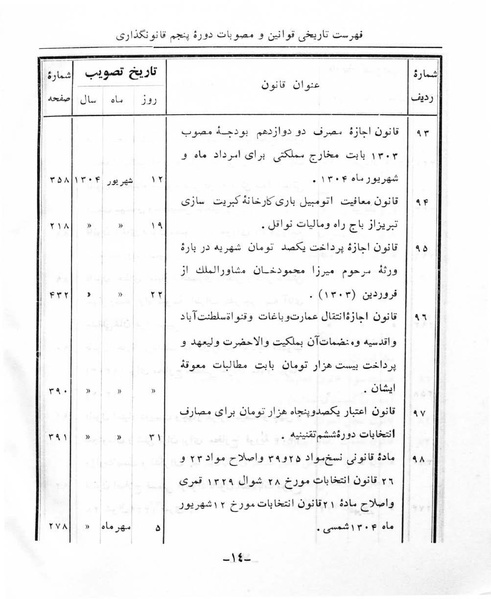 فهرست تاریخی قوانین و مصوبات دورهٔ پنجم قانونگذاری
شمارهٔ ردیف عنوان قانون تاریخ تصویب روز ماه سال شمارهٔ صفحه
۹۳ قانون اجازهٔ مصرف دو دوازدهم بودجهٔ مصوب
۱۳۰۳ بابت مخارج مملکتی برای امرداد ماه و
شهریور ماه ۱۳۰۴. ۱۲ شهریور ۱۳۰۴ ۳۵۸
۹۴ قانون معافیت اتومبیل باری کارخانهٔ کبریت سازی
تبریز از باج راه و مالیات نواقل. ۱۹ » » ۲۱۸
۹۵ قانون اجازهٔ پرداخت یکصد تومان شهریه در بارهٔ
ورثهٔ مرحوم میرزا محمودخان مشاورالملک از
فروردین (۱۳۰۳). ۲۲ » » ۴۳۲
۹۶ قانون اجازهٔ انتقال عمارت و باغات و قنوات سلطنت‌آباد
و اقدسیه و منضمات آن بملکیت والاحضرت ولیعهد و
پرداخت بیست هزار تومان بابت مطالبات معوقهٔ
ایشان. » » » ۳۹۰
۹۷ قانون اعتبار یکصد و پنجاه هزار تومان برای مصارف
انتخابات دورهٔ ششم تقنینیه. ۳۱ » » ۳۹۱
۹۸ مادهٔ قانونی نسخ مواد ۲۵ و ۳۹ و اصلاح مواد ۲۳ و
۲۶ قانون انتخابات مورخ ۲۸ شوال ۱۳۲۹ قمری
و اصلاح مادهٔ ۲۱ قانون انتخابات مورخ ۱۲ شهریور
ماه ۱۳۰۴ شمسی. ۵ مهر ماه » ۲۷۸
-۱۴-